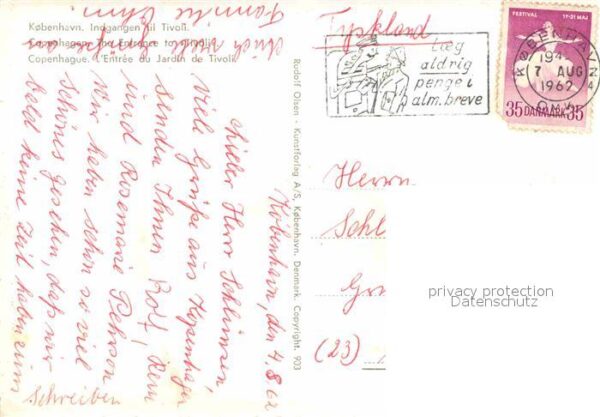 København. Indgangen til Tivoli.
Copenhagen. The Entrance to »Tivoli«.
Copenhague. L'Entrée du Jardin de Tivoli.
København, den 4.8.62
Lieber Herr Schlimsen,
viele Grüße aus Kopenhagen
senden Ihnen Rolf, Remi
und Rosemarie
Wir haben schon so viel
schönes gesehen, daß wir
bald keine Zeit haben zum
schreiben
Auch von
Familie
Rudolf Olsen - Kunstforlag A/S, København. Denmark. Copyright. 903
Tyskland
Læg
aldrig
penge i
alm. breve
KØBENHAVN
7 AUG
1962
OMK
FESTIVAL 17-31 MAJ
35 DANMARK 35
Herrn
Schl
Gr
(23)
privacy protection
Datenschutz